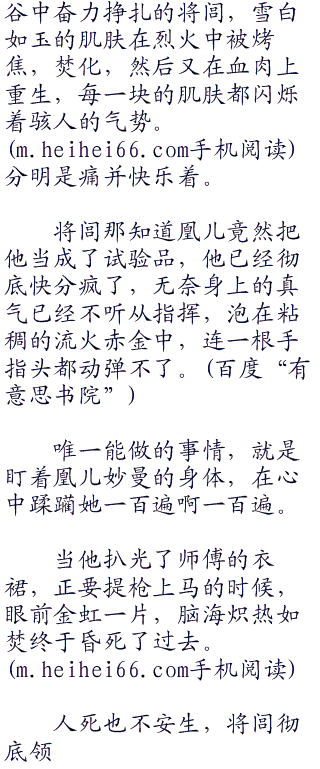 谷中奋力挣扎的将闾，雪白
如玉的肌肤在烈火中被烤
焦，焚化，然后又在血肉上
重生，每一块的肌肤都闪烁
着骇人的气势。
(m.heihei66.com手机阅读)
分明是痛并快乐着。
将闾那知道凰儿竟然把
他当成了试验品，他已经彻
底快分疯了，无奈身上的真
气已经不听从指挥，泡在粘
稠的流火赤金中，连一根手
指头都动弹不了。(百度“有
意思书院”)
唯一能做的事情，就是
盯着凰儿妙曼的身体，在心
中蹂躏她一百遍啊一百遍。
当他扒光了师傅的衣
裙，正要提枪上马的时候，
眼前金虹一片，脑海炽热如
焚终于昏死了过去。
(m.heihei66.com手机阅读)
人死也不安生，将闾彻
底领